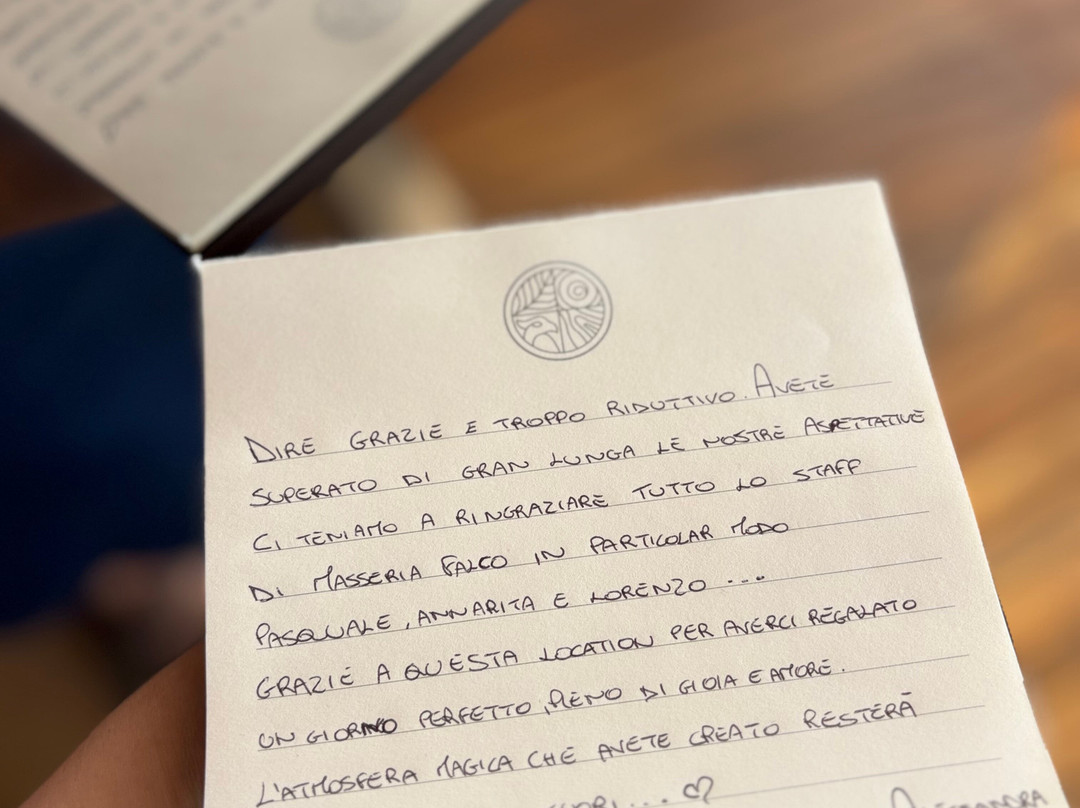 DIRE GRAZIE E TROPPO RIDUTTIVO. AVETE
SUPERATO DI GRAN LUNGA LE NOSTRE ASPETTATIVE
CI TENIAMO A RINGRAZIARE TUTTO LO STAFF
DI MASSERIA FALCO IN PARTICOLAR MODO
PASQUALE, ANNARITA E LORENZO ...
GRAZIE A QUESTA LOCATION PER AVERCI REGALATO
UN GIORNO PERFETTO, PIENO DI GIOIA E AMORE.
L'ATMOSFERA MAGICA CHE AVETE CREATO RESTERÀ
... ♡